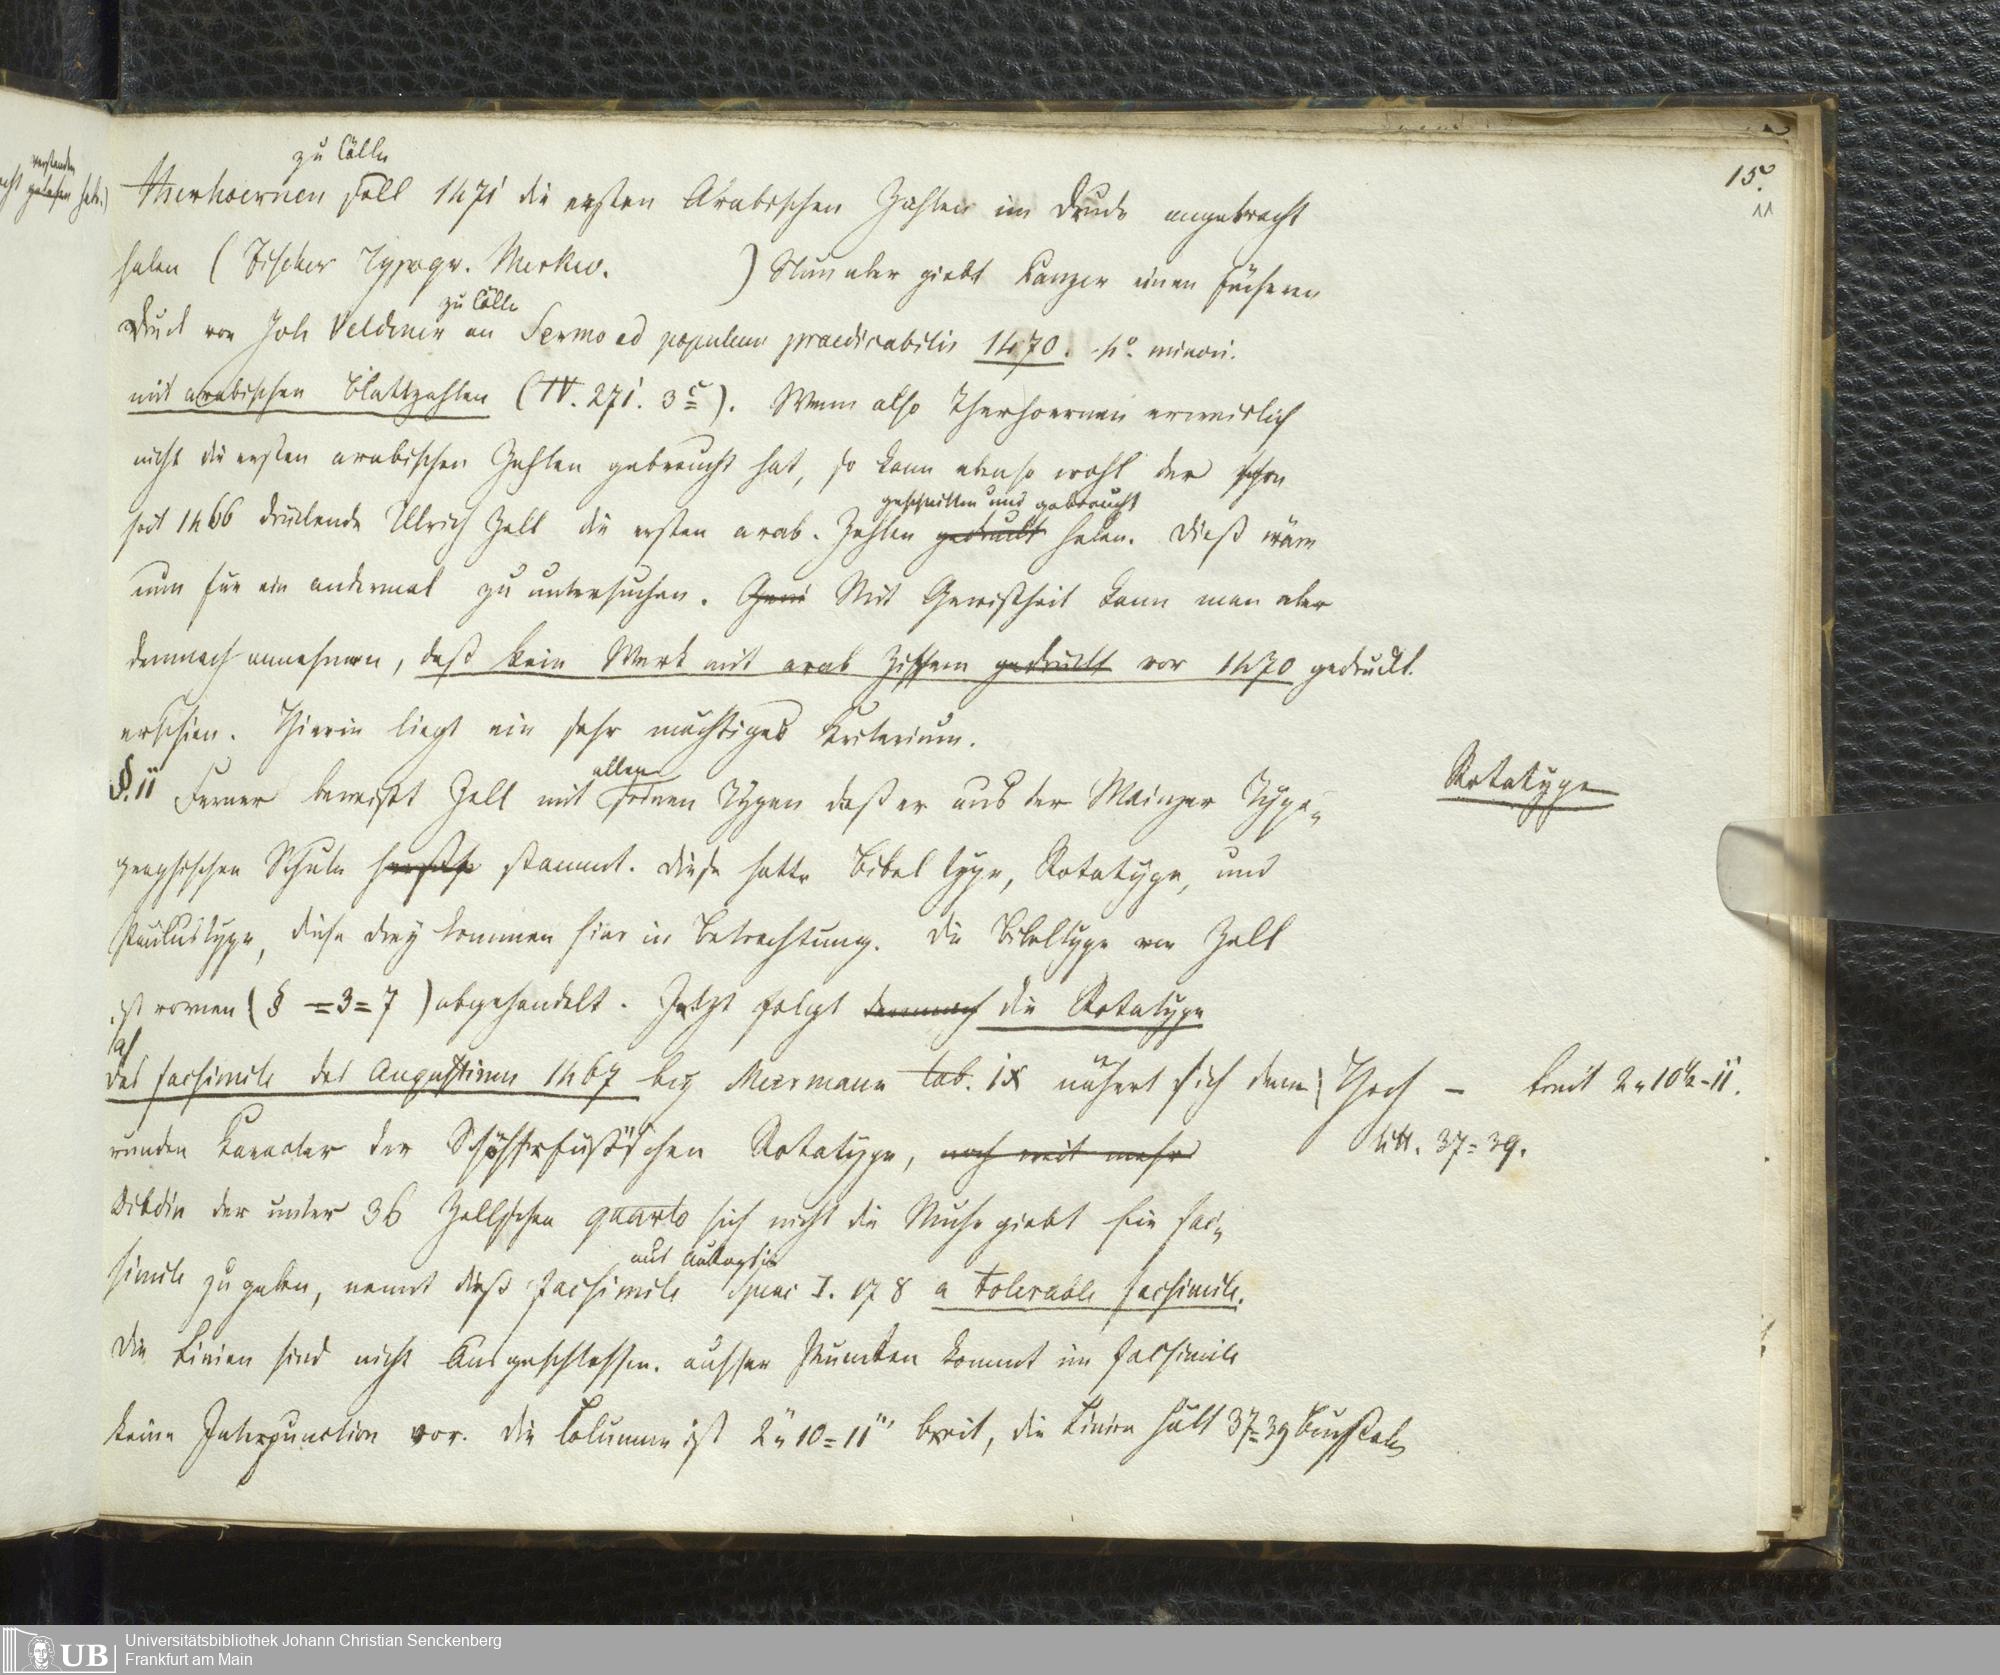 15.
11
zu Cölln
Therhoernen soll 1471 die ersten Arabischen Zahlen im Druck angebracht
haben ( Fischer Typogr. Merkw. ) Nun aber giebt Panzer einen früheren
zu Cölln
Druck von Joh Veldener an Sermo ad populum praedicabilis 1470. 4o. minori.
mit arabischen Blattzahlen (IV. 271. 3c). Wenn also Therhoernen erweislich
nicht die ersten arabischen Zahlen gebraucht hat, so kann ebenso wohl der schon
geschnitten und gebraucht
seit 1466 druckende Ulrich Zell die ersten arab. Zahlen gedruckt haben. Dieß wäre
nun für ein andermal zu untersuchen. Mit Gewißheit kann man aber
demnach annehmen, daß kein Werk mit arab Ziffern gedruckt vor 1470 gedruckt.
erschien. Hierin liegt ein sehr mächtiges Kriterium.
allen
§.11 Ferner beweißt Zell mit seinen Typen daß er aus der Mainzer Typo-
graphischen Schule stammt. Diese hatte Bibeltype, Rotatype, und
Rotatype
Paulustype, diese drey kommen hier in Betrachtung. Die Bibeltype von Zell
ist vornen (§ =3=7 ) abgehandelt. Jetzt folgt demnach die Rotatype
Das facsimile des Augustinus 1467 bey Meermann tab. ix nähert sich dem
Hoch – breit 2" 10½-11.
runden Karacter der Schöfferfust'schen Rotatype, noch weit mehr
litt. 37=39.
Dibdin der unter 36 Zellschen quarto sich nicht die Mühe giebt ein fac-
aus Autopsie
simile zu geben, nennt dieß facsimile Spenc I. 178 a tolerable facsimile.
Die Linien sind nicht Ausgeschlossen. ausser Punkten kommt im facsimile
keine Interpunction vor. die Columne ist 2" 10=11''' breit, die Linien hält 37=39 Buchstaben
Universitätsbibliothek Johann Christian Senckenberg
UB Frankfurt am Main